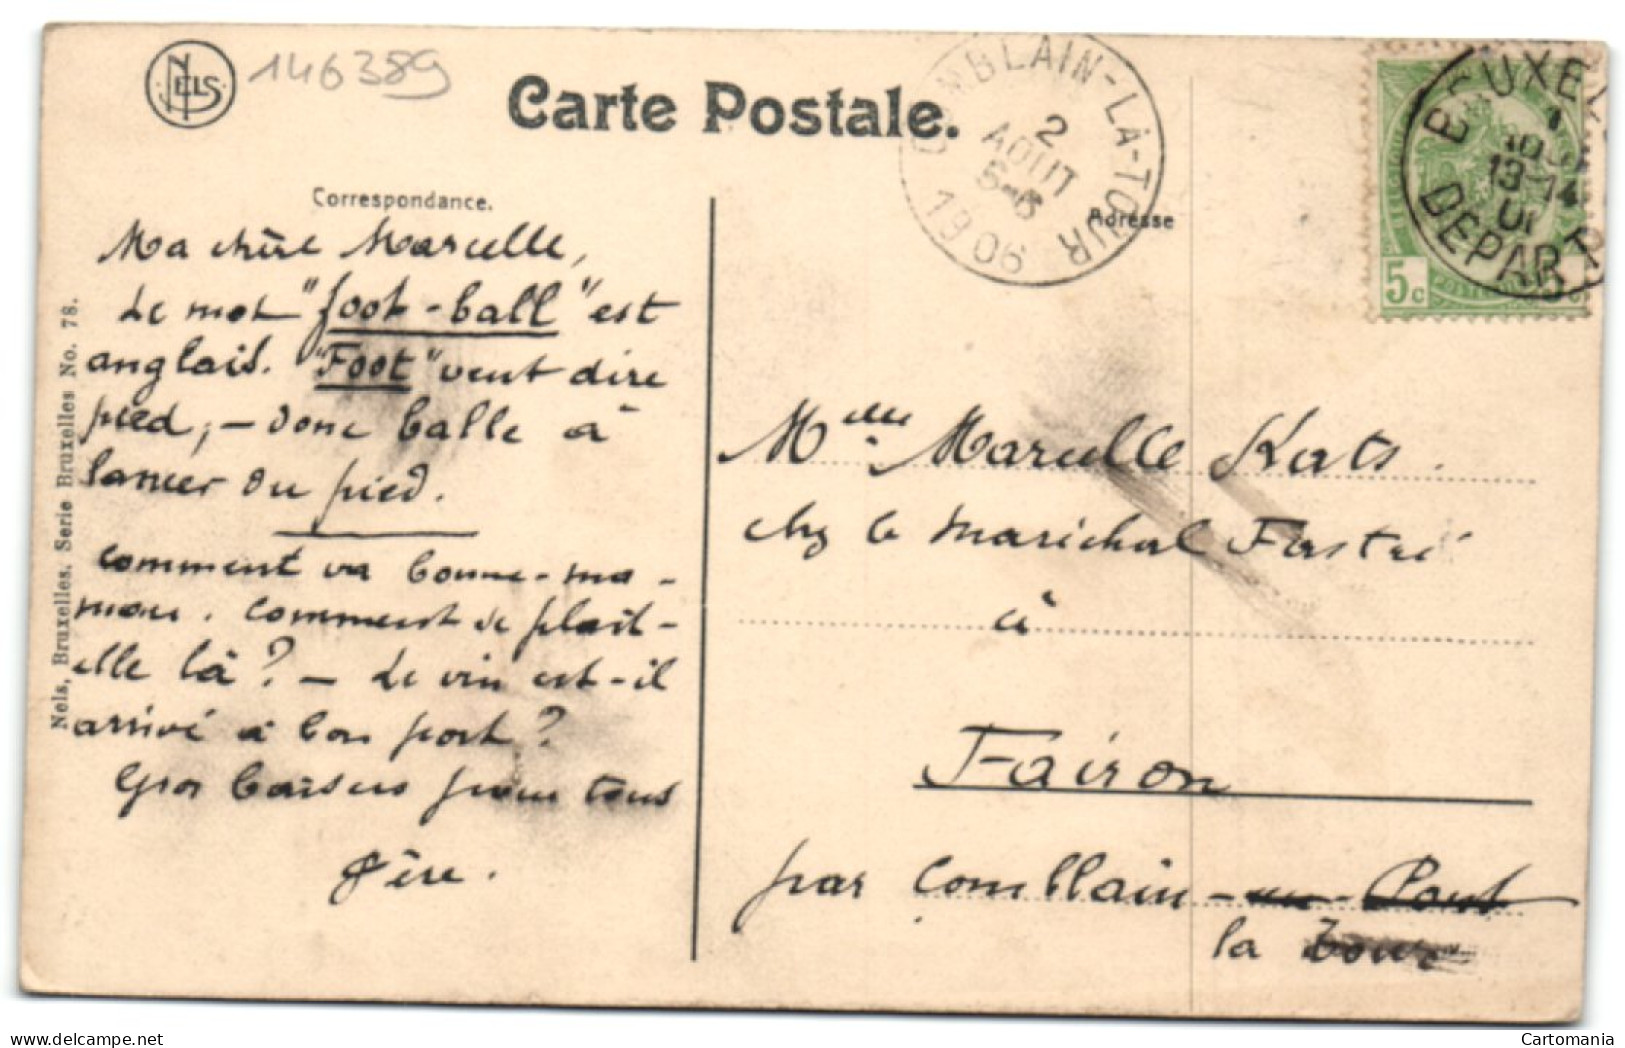 NELS
146389
Carte Postale.
COMBLAIN-LA-TOUR
2
AOUT
5-6
1906
BRUXEL
1
13-14
DEPART
5c
Correspondance.
Adresse
Ma chère Marcelle,
Le mot "foot-ball" est
anglais. "Foot" veut dire
pied, — donc balle à
lancer du pied.
Comment va bonne-ma-
man. Comment se plait-
elle là? — Le vin est-il
arrivé à bon port?
Gros baisers pour tous
Père.
Nels, Bruxelles. Serie Bruxelles No. 78.
Melle Marcelle Kats.
chez le Maréchal Ferstré
à
Fairon
par Comblain-au-Pont
la Tour
Cartomania